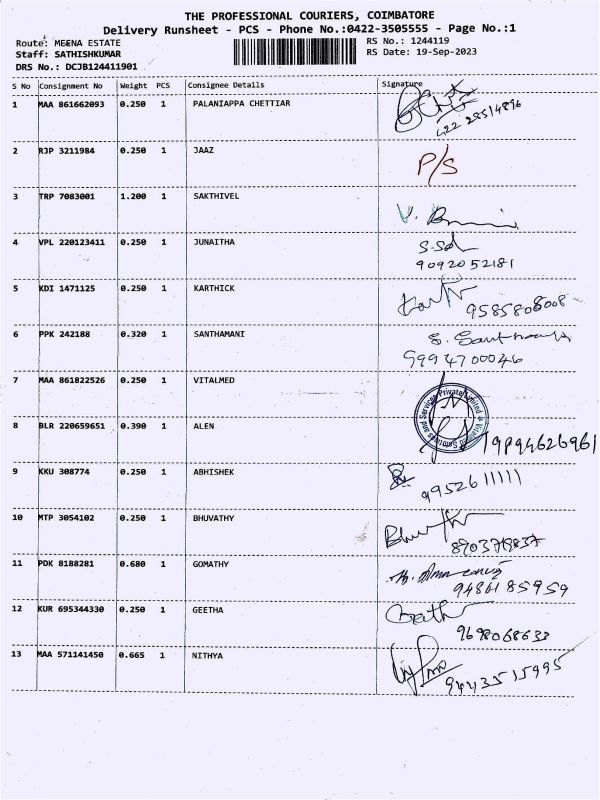 THE PROFESSIONAL COURIERS, COIMBATORE
Delivery Runsheet - PCS - Phone No.:0422-3505555 - Page No.:1
Route: MEENA ESTATE RS No.: 1244119
Staff: SATHISHKUMAR RS Date: 19-Sep-2023
DRS No.: DCJB124411901
S No Consignment No Weight PCS Consignee Details Signature
1 MAA 861662093 0.250 1 PALANIAPPA CHETTIAR
2 RJP 3211984 0.250 1 JAAZ P/S
3 TRP 7083001 1.200 1 SAKTHIVEL
4 VPL 220123411 0.250 1 JUNAITHA
9092052181
5 KDI 1471125 0.250 1 KARTHICK
6 PPK 242188 0.320 1 SANTHAMANI
9994700046
7 MAA 861822526 0.250 1 VITALMED
8 BLR 220659651 0.390 1 ALEN
9 KKU 308774 0.250 1 ABHISHEK
9952611111
10 MTP 3054102 0.250 1 BHUVATHY
11 PDK 8188281 0.680 1 GOMATHY
9486185959
12 KUR 695344330 0.250 1 GEETHA
9698068633
13 MAA 571141450 0.665 1 NITHYA
9443515995